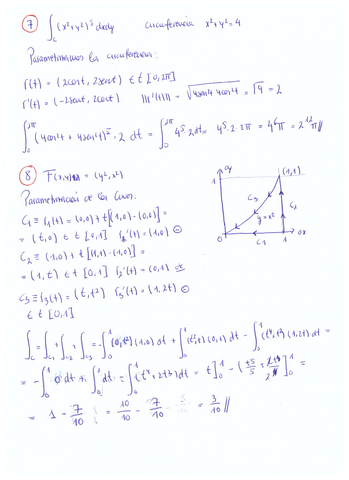 7 ∫c (x²+y²)⁵ dxdy circunferencia x²+y²=4
Parametrizamos la circunferencia:
r(t) = (2cost, 2sent) ∈ t [0, 2π]
r'(t) = (-2sent, 2cost) ||r'(t)|| = √4sen²t 4cos²t = √4 = 2
∫₀^2π (4cos²t + 4sen²t)⁵ · 2 dt = ∫₀^2π 4⁵ · 2dt = 4⁵ · 2 · 2π = 4⁶π = 2¹²π //
8 F(x,y) = (y², x²)
Parametrización de las curvas:
C₁ ≡ r₁(t) = (0,0) + t[(1,0) - (0,0)] =
= (t, 0) ∈ t [0,1] r₁'(t) = (1,0) ⊖
C₂ ≡ (1,0) + t [(1,1) - (1,0)] =
= (1, t) ∈ t [0,1] r₂'(t) = (0,1)
C₃ ≡ r₃(t) = (t, t²) r₃'(t) = (1, 2t) ⊖
∈ t [0,1]
oy
1
(1,1)
C₃
y=x²
C₂
0
C₁
1
ox
∫c = ∫c₁ + ∫c₂ + ∫c₃ = -∫₀¹ (0, t²)(1,0) dt + ∫₀¹ (t², 1)(0,1) dt - ∫₀¹ (t⁴, t²)(1, 2t) dt =
= -∫₀¹ 0 dt + ∫₀¹ dt - ∫₀¹ (t⁴ + 2t³) dt = t]₀¹ - (t⁵/5 + 2t⁴/4]₀¹ =
= 1 - 7/10 = 10/10 - 7/10 = 3/10 //